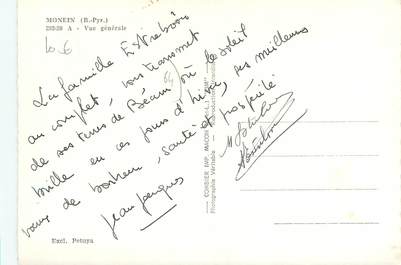 MONEIN (B.-Pyr.)
282-28 A - Vue générale
La famille Estreboou
au complet, vous transmet
de ses terres de Béarn où le soleil
brille en ces jours d'hiver, ses meilleurs
vœux de bonheur, santé et prospérité
Jean Jacques
COMBIER IMP. MACON
Photographie Véritable
Excl. Petuya